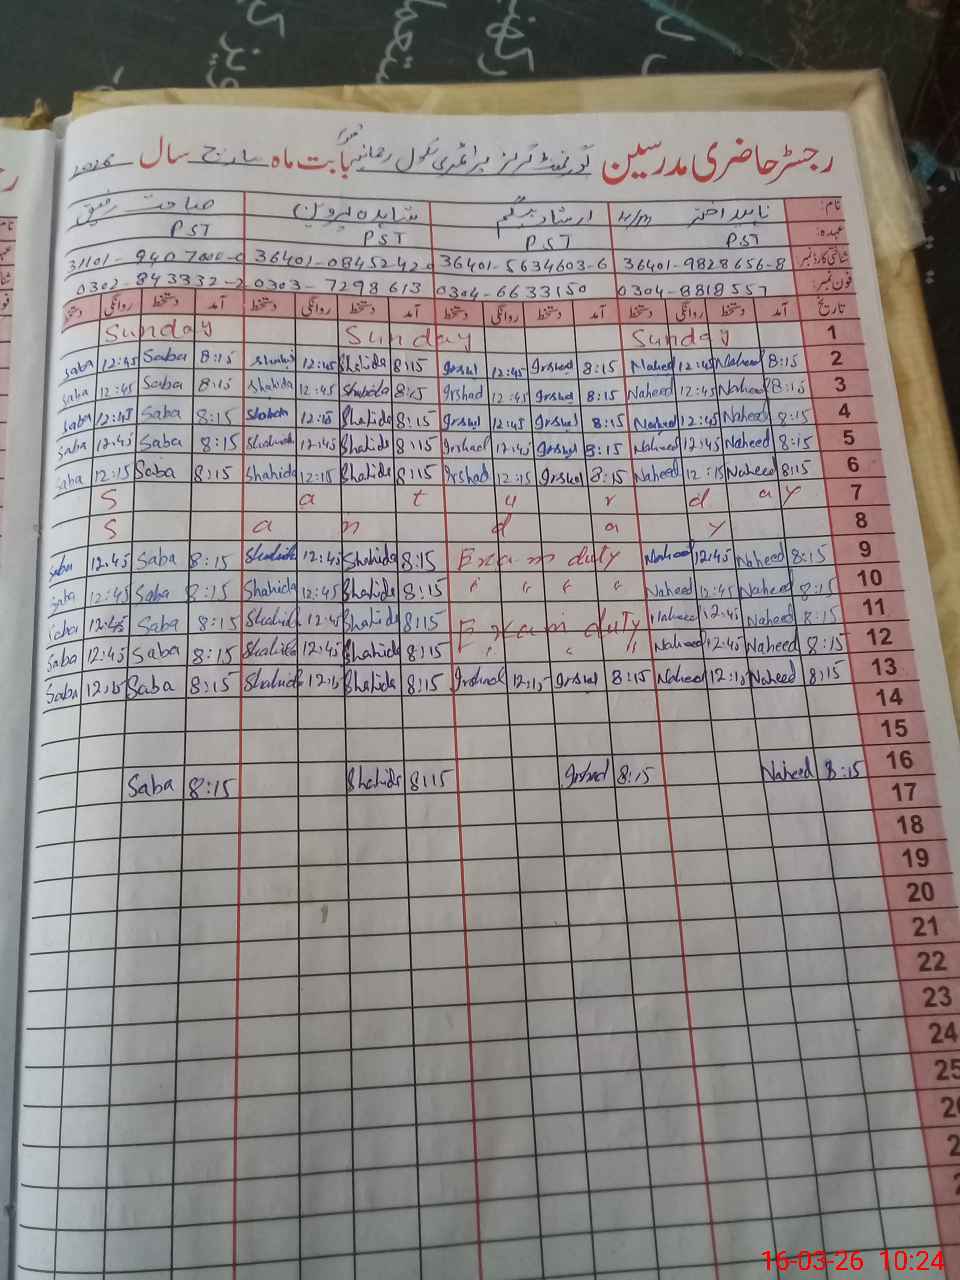 رجسٹر حاضری مدرسین گورنمنٹ گرلز پرائمری سکول بابت ماہ مارچ سال 2026
نام: ناہید اختر H/M ارشاد بیگم شاہدہ پروین صباحت رفیق
عہدہ: PST PST PST PST
شناختی کارڈ نمبر 36401-9828656-8 36401-5634603-6 36401-0845242- 31101-9407000-0
فون نمبر: 0304-8818557 0304-6633150 0303-7298613 0302-843332-2
تاریخ آمد دستخط روانگی دستخط آمد دستخط روانگی دستخط آمد دستخط روانگی دستخط آمد دستخط روانگی دستخط
1 Sunday Sunday Sunday
2 8:15 Naheed 12:45 Naheed 8:15 Irshad 12:45 Irshad 8:15 Shahida 12:45 Shahida 8:15 Saba 12:45 Saba
3 8:15 Naheed 12:45 Naheed 8:15 Irshad 12:45 Irshad 8:15 Shahida 12:45 Shahida 8:15 Saba 12:45 Saba
4 8:15 Naheed 12:45 Naheed 8:15 Irshad 12:45 Irshad 8:15 Shahida 12:15 Shahida 8:15 Saba 12:45 Saba
5 8:15 Naheed 12:45 Naheed 8:15 Irshad 12:45 Irshad 8:15 Shahida 12:45 Shahida 8:15 Saba 12:45 Saba
6 8:15 Naheed 12:15 Naheed 8:15 Irshad 12:15 Irshad 8:15 Shahida 12:15 Shahida 8:15 Saba 12:15 Saba
7 S a t u r d a y
8 S a n d a y
9 8:15 Naheed 12:45 Naheed Exam duty 8:15 Shahida 12:45 Shahida 8:15 Saba 12:45 Saba
10 8:15 Naheed 12:45 Naheed " " " " 8:15 Shahida 12:45 Shahida 8:15 Saba 12:45 Saba
11 8:15 Naheed 12:45 Naheed Exam duty 8:15 Shahida 12:45 Shahida 8:15 Saba 12:45 Saba
12 8:15 Naheed 12:45 Naheed " " " 8:15 Shahida 12:45 Shahida 8:15 Saba 12:45 Saba
13 8:15 Naheed 12:15 Naheed 8:15 Irshad 12:15 Irshad 8:15 Shahida 12:15 Shahida 8:15 Saba 12:15 Saba
14
15
16 8:15 Naheed 8:15 Irshad 8:15 Shahida 8:15 Saba
17
18
19
20
21
22
23
24
25
16-03-26 10:24